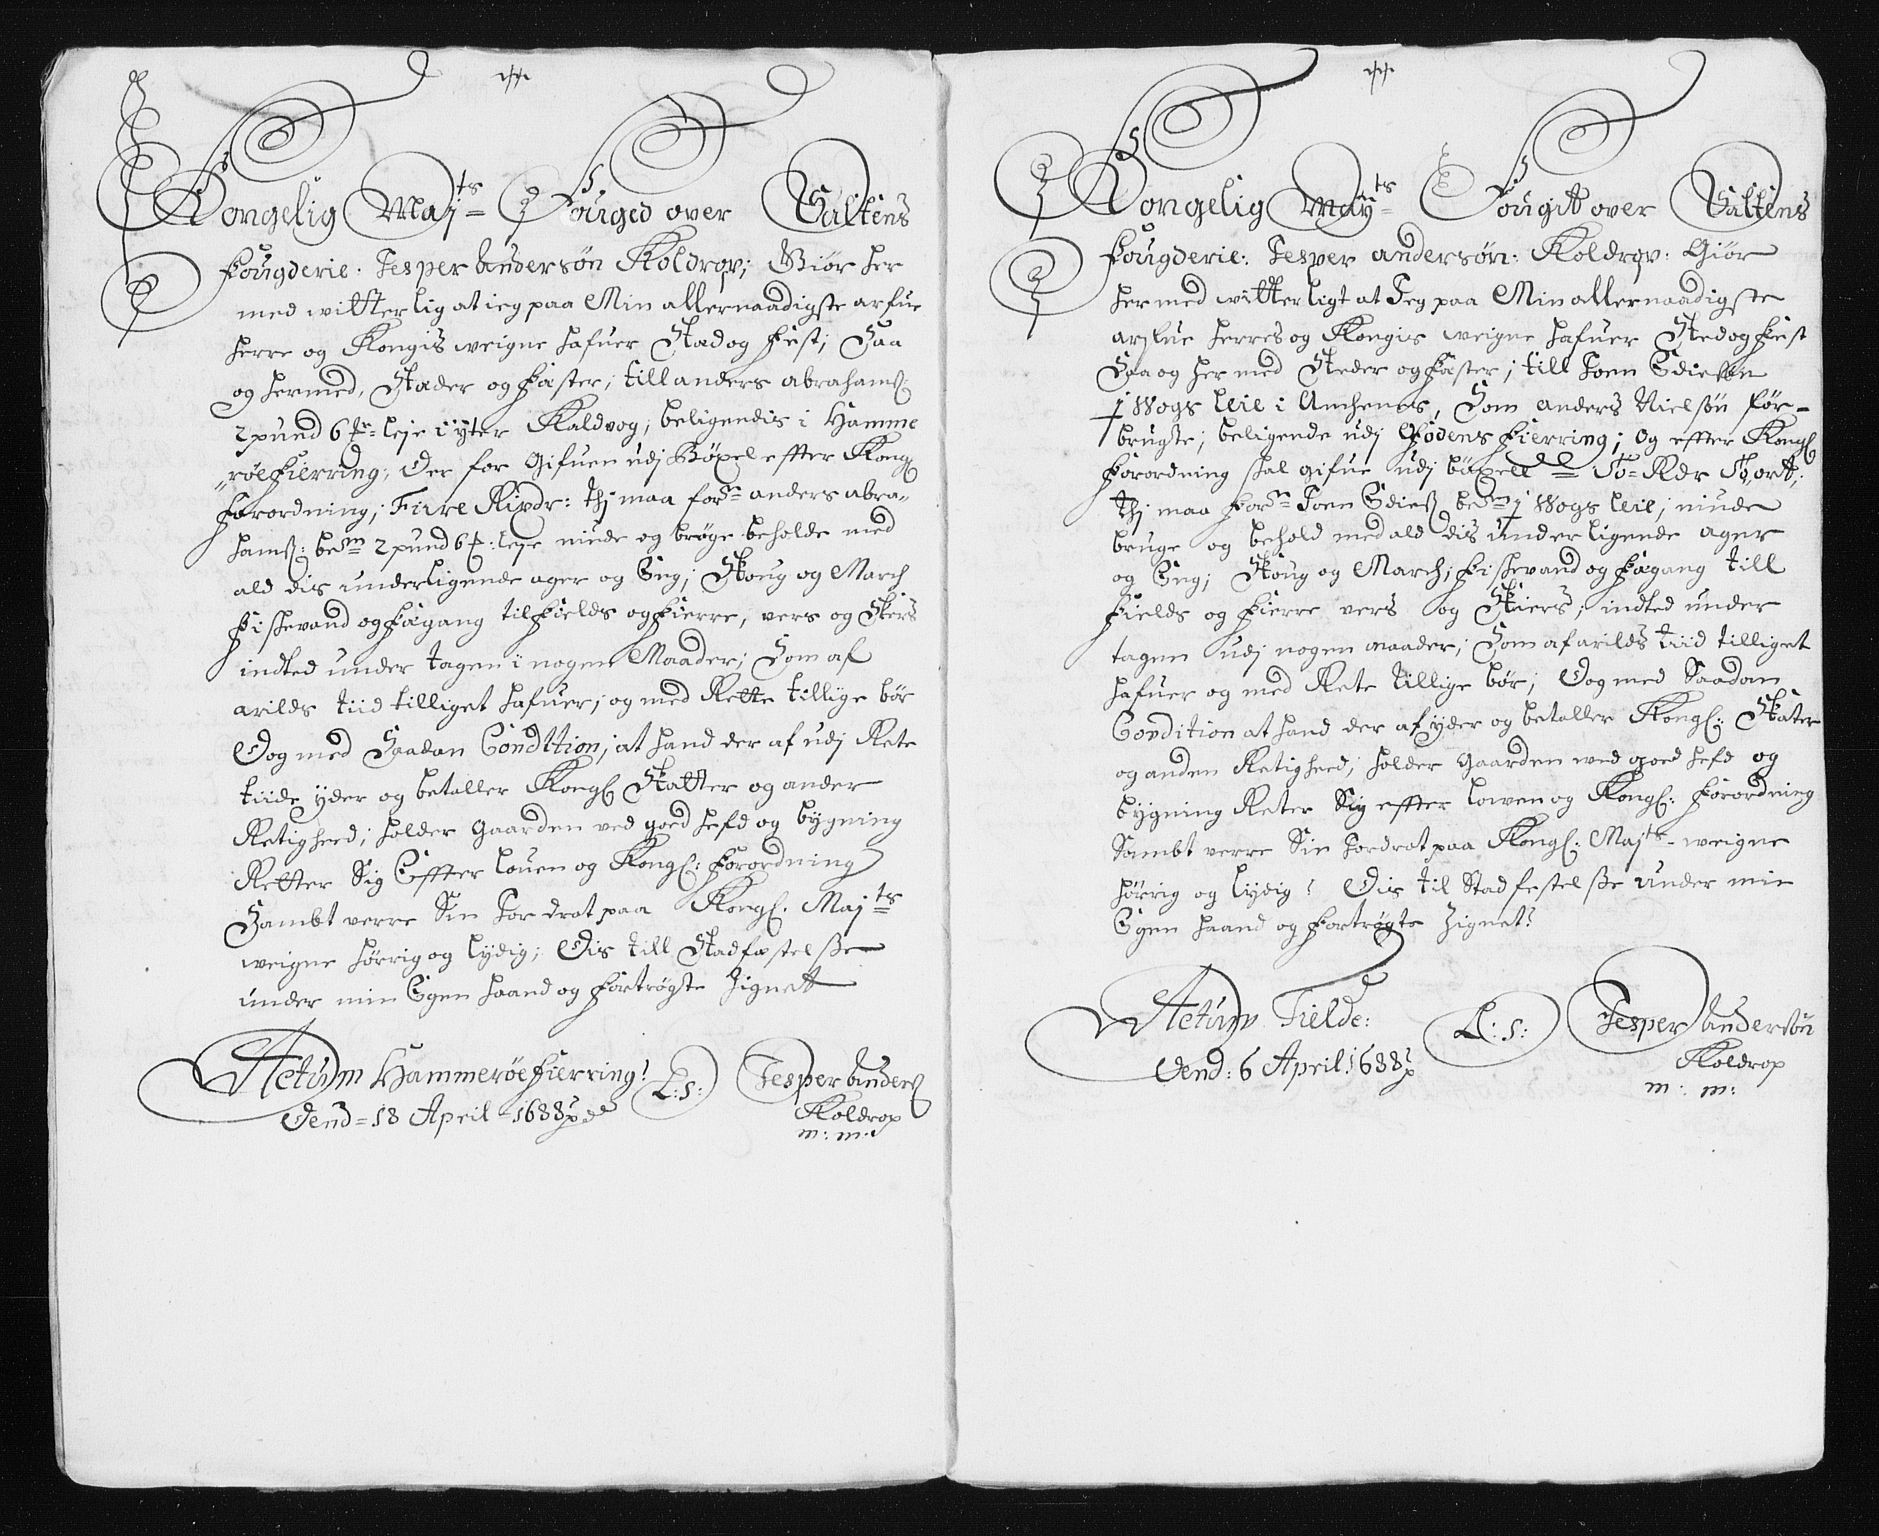 Kongelig Maj^ts Fouged over Saltens
Fougderie. Jesper Andersøn Koldrop; Giør her
med witterlig at ieg paa Min allernaadigste arfue
herre og Kongis weigne hafuer Stæd og Fest; Saa
og hermed, Stæder og Fæster; till anders abrahamß:
2 pund 6 leje i ÿter Kaldvog; beligendis i Hamme
røe Fierring; Der for Gifuen udj Böxel effter Kongl
Forordning; Fiire Rixdr: thj maa fors^n anders abra-
hamß: bem^n 2 pund 6 : leje niude og brøge beholde med
ald dis underligende ager og Eng; Skoug og March
Fiskevand og Fægang til Fields og Fierre, vers og Skers
indted under tagen i nogen Maader; Som af
arilds tiid tilliget hafuer; og med Rette tillige bör
Dog med Saadan Condttion; at hand der af udj Rete
tiide ÿder og betaller Kongl Skatter og ander
Retigheed; holder Gaarden ved goed hefd og bÿgning
Retter Sig Effter louen og Kongl: Forordning
Sambt verre Sin For drot paa Kongl. Maj^ts
weigne hörrig og lÿdig; Dis till Stadfæstelsße
under min Egen haand og Fortrøgte Zignett
Actum Hammerøe Fierring!
Dend = 18 April 1688
L: S:
Jesper Anderß
Koldrop
m: m:
Kongelig Maÿ^ts Fougit over Saltens
Fougderie: Jesper andersøn: Koldrop: Giör
her med witterligt at Jeg paa Min allernaadigste
arfue herres og Kongis weigne hafuer Sted og Fest
Saa og her med Steder og Fæster; till Joen Edisøn
j Wogs leie i Anchenes, Som anders Nielsøn för-
brugte; beligende udj Fodens Fierring; og effter Kongl
Forordning skal gifue udj böxell To= Rdr Tj ort;
thj maa Fors^n Joen Edieß bem^n j Wogs leie; niude
bruge og behold med ald dis underligende ager
og Eng; Skoug og March; Fiskevand og Fægang till
Fields og Fierre vers og Skiers; indted under
tagen udj nogen maader; Som af arilds tiid tilliget
hafuer og med Rete tillige bör; Dog med Saadan
Condition at hand der af ÿder og betaller Kongl: Skater
og anden Retigheed; holder Gaarden wed goed hefd og
bÿgning Reter Sig effter lowen og Kongl: Forordning
Sambt verre Sin Fordrot paa Kongl: Maj^ts weigne
hörrig og lÿdig! Dis til Stadfestelsße under min
Egen haand og Fortrøgte Zignet!
Actum Fielde:
Dend: 6 April 1688
L: S:
Jesper Andersøn
Koldrop
m: m: